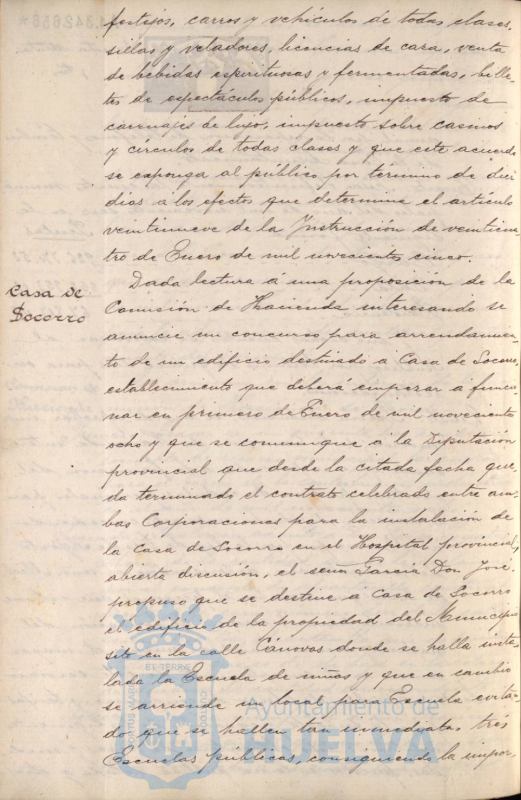 festejos, carros y vehículos de todas clases,
sillas y veladores, licencias de caza, venta
de bebidas espirituosas y fermentadas, bille-
tes de espectáculos públicos, impuesto de
carruajes de lujo, impuesto sobre casinos
y círculos de todas clases y que este acuerdo
se exponga al público por término de diez
días a los efectos que determina el artículo
veintinueve de la Instrucción de veinticua-
tro de Enero de mil novecientos cinco.
Casa de
Socorro
Dada lectura á una proposición de la
Comisión de Hacienda interesando se
anuncie un concurso para arrendamien-
to de un edificio destinado a Casa de Socorro,
establecimiento que deberá empezar á funcio-
nar en primero de Enero de mil novecientos
ocho y que se comunique á la Diputación
provincial que desde la citada fecha que-
da terminado el contrato celebrado entre am-
bas Corporaciones para la instalación de
la Casa de Socorro en el Hospital provincial,
abierta discusión, el señor García Don José
propuso que se destine á Casa de Socorro
el edificio de la propiedad del Municipio
sito en la calle Cánovas donde se halla insta-
lada la Escuela de niños y que en cambio
se arriende un local para Escuela evitan-
do que se hallen tan inmediatas tres
Escuelas públicas, consiguiendo la impor-
Ayuntamiento de
HUELVA